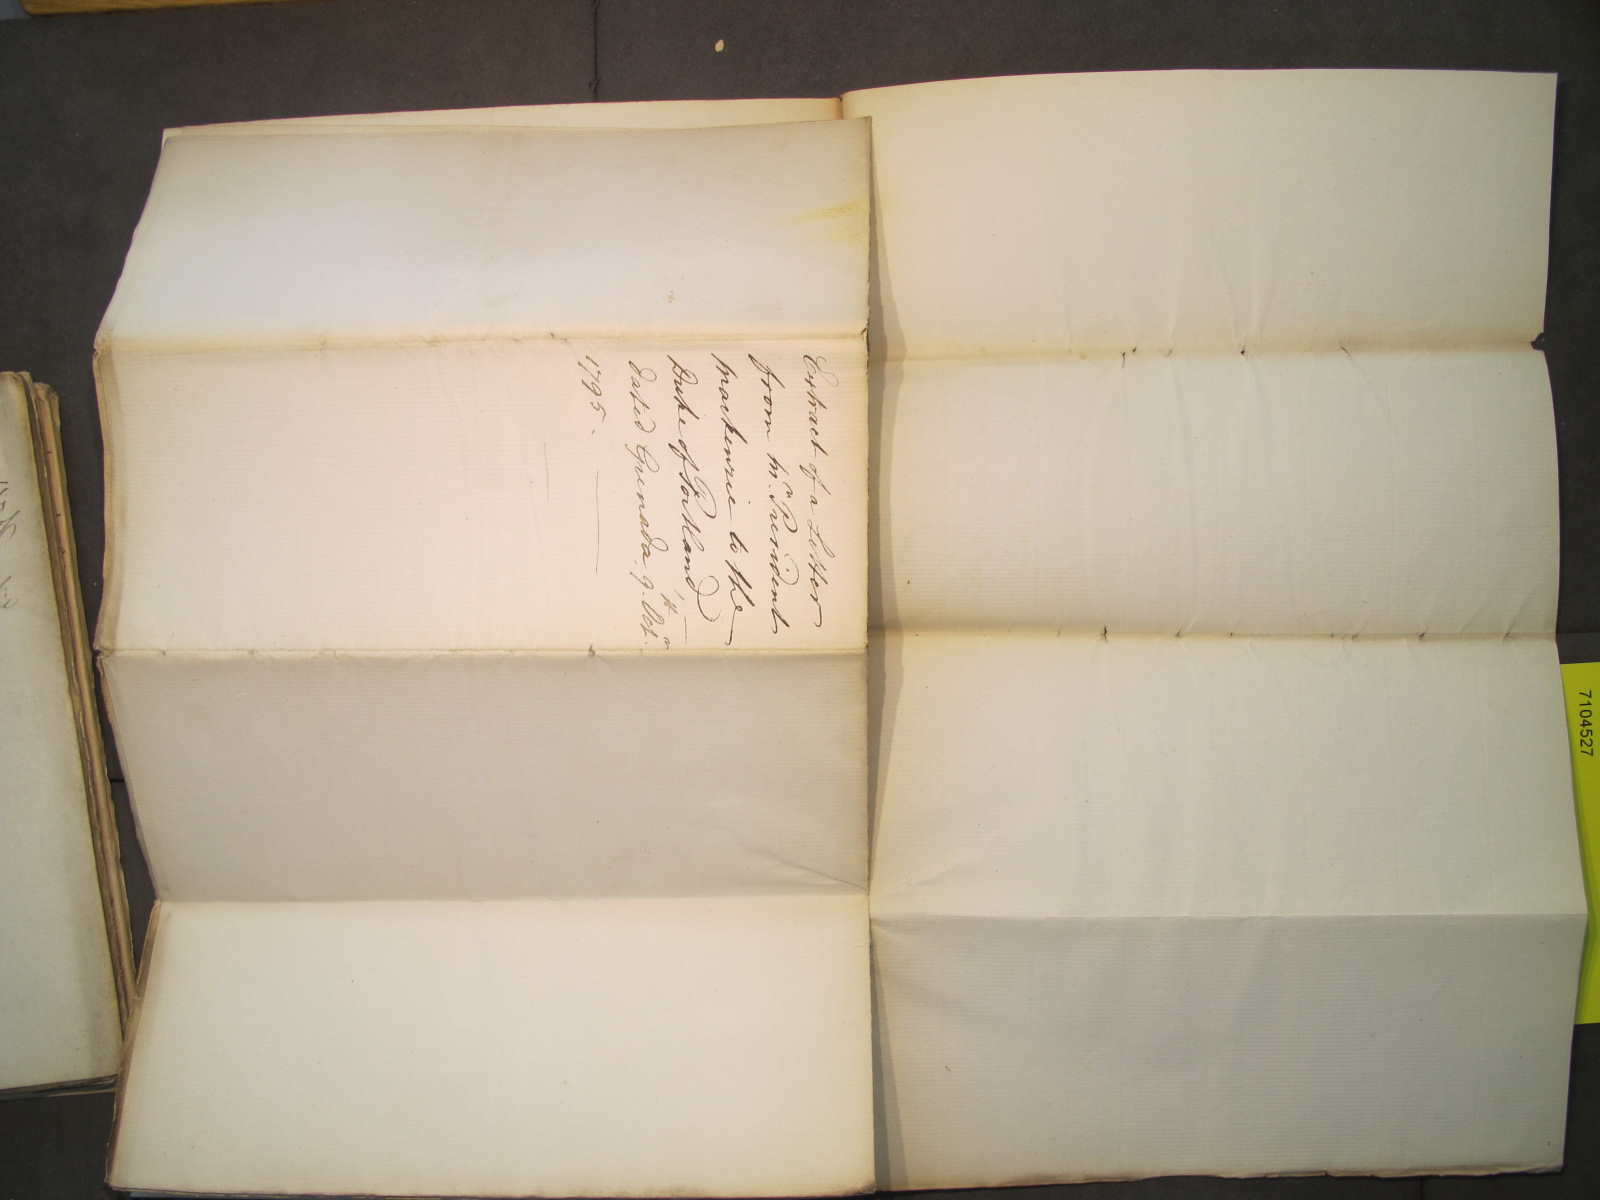 Extract of a Letter
from Mr. President
Mackenzie to the
Duke of Portland,
dated Grenada. 9th. Octr.
1795.
7104527